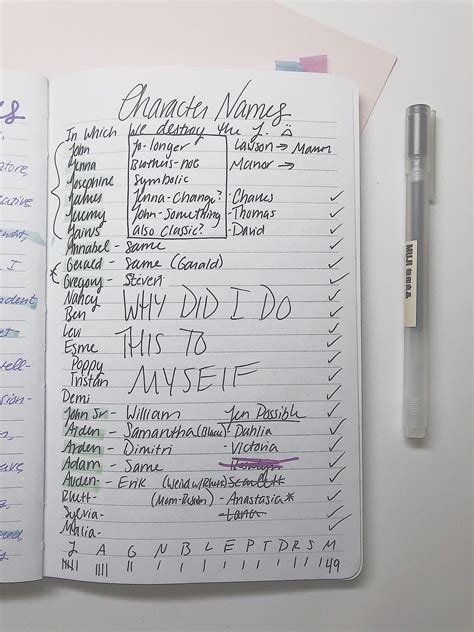 Character Names
In which we destroy the J.
John Jo-longer Lawson → Manor
Jenna Manor →
Josephine Symbolic
James Jenna-Change? - Charles ✓
Jeremy John-Something - Thomas ✓
also classic? - David ✓
Annabel - Same ✓
Gerald - Same (Garald) ✓
Gregory - Steven ✓
Nancy ✓
Ben ✓
Levi ✓
Esme ✓
Poppy ✓
Tristan ✓
Demi ✓
WHY DID I DO
THIS TO
MYSELF
John Sr - William Jen Possible ✓
Arden - Samantha - Dahlia ✓
Arden - Dimitri - Victoria ✓
Adam - Same ✓
Auden - Erik Scarlett ✓
Rhett - - Anastasia * ✓
Sylvia - - Lana ✓
Malia - ✓
J A G N B L E P T D R S M
149
MUJI
無印良品